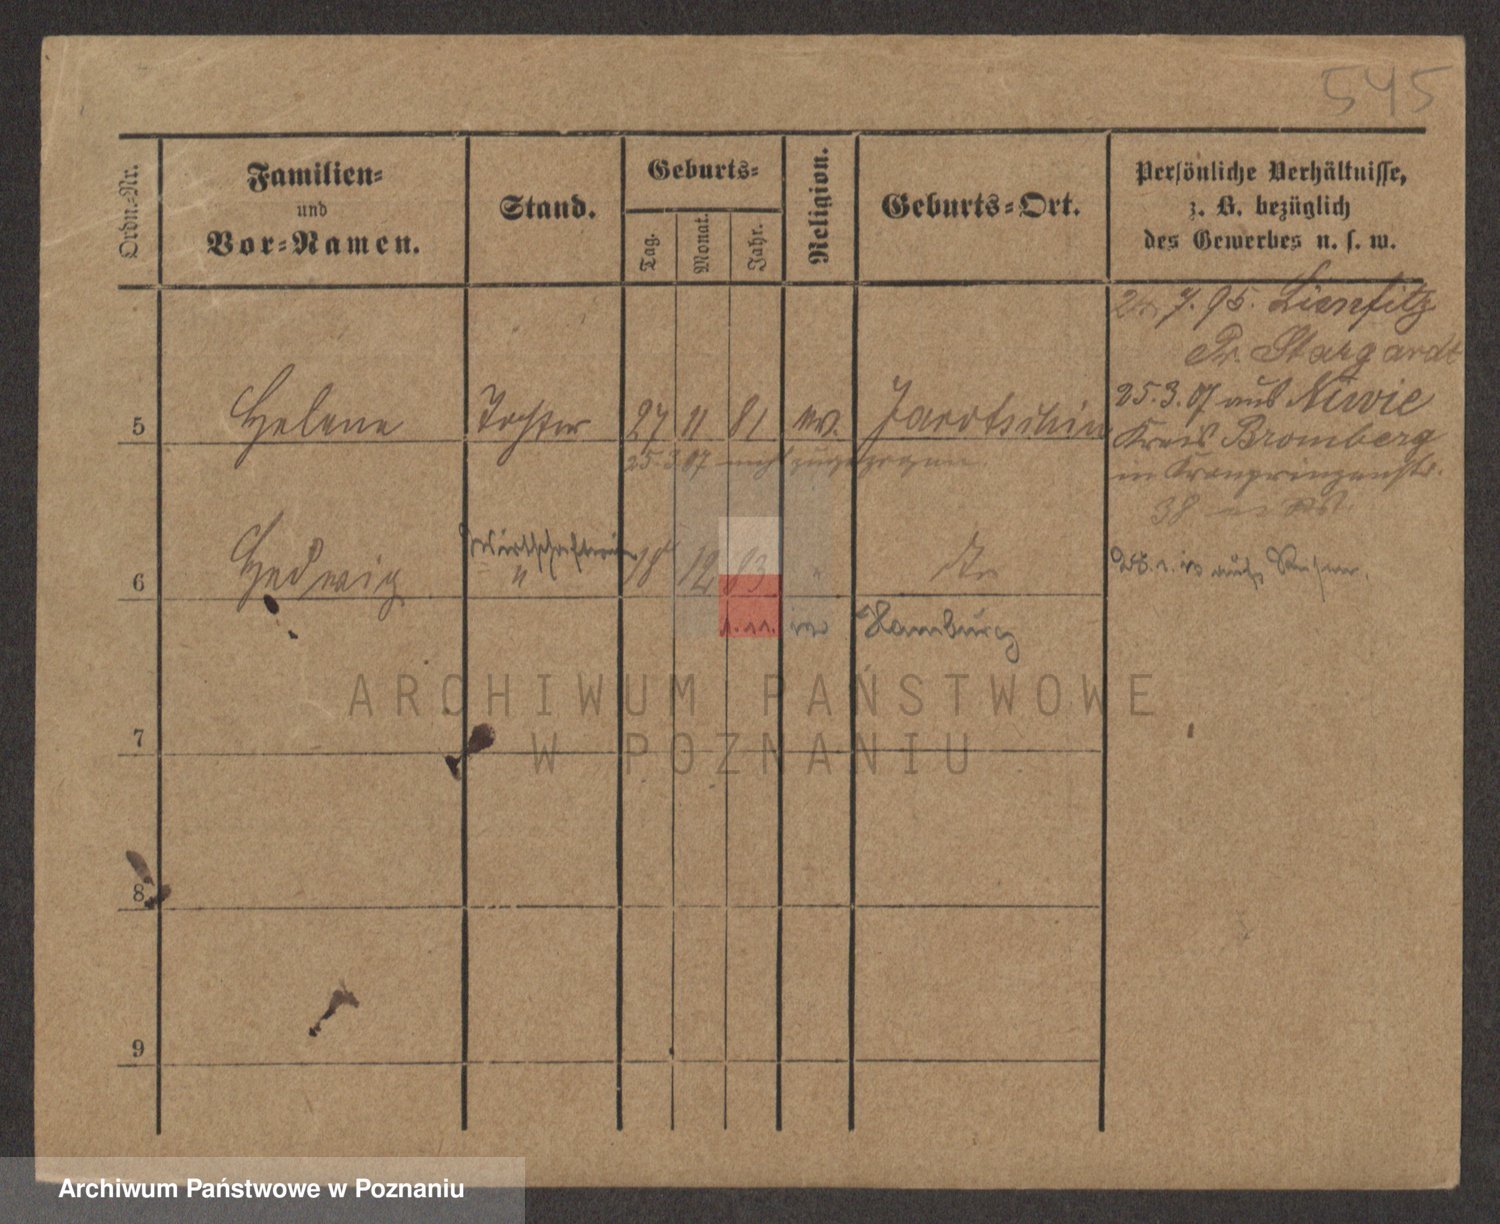 545
Ordn.-Nr.
Familien-
und
Vor-Namen.
Stand.
Geburts-
Tag.
Monat.
Jahr.
Religion.
Geburts-Ort.
Persönliche Verhältnisse,
z. B. bezüglich
des Gewerbes u. s. w.
7. 95.
Pr. Stargardt
5 Helene Tochter 27 11 81 ev. Jarotschin
25.3.07 aus Niwie
Kreis Bromberg
in Kronprinzenstr.
38
25.3.07 zugezogen
6 Hedwig " 18 12 83 "
Hamburg
7
8
9
ARCHIWUM PAŃSTWOWE
W POZNANIU
Archiwum Państwowe w Poznaniu